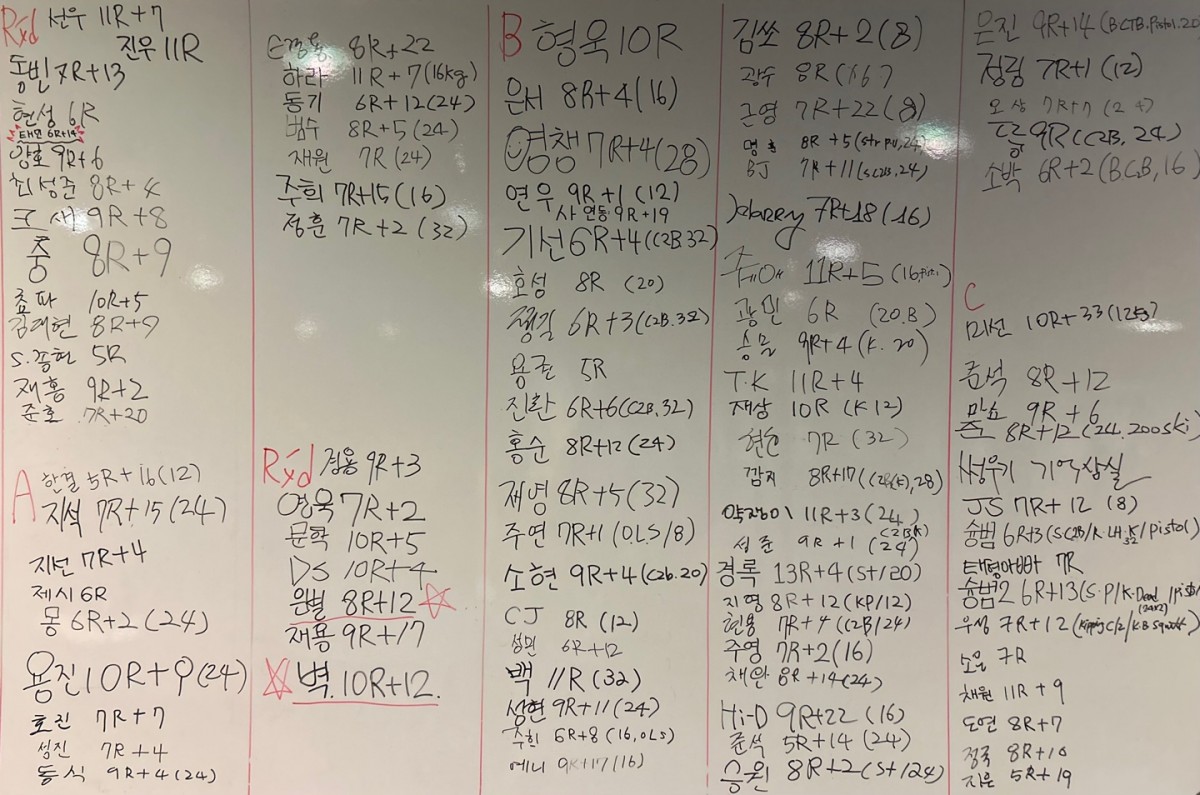 Rx'd 선우 11R+7
진우 11R
동빈 7R+13
현성 6R
태민 6R+19
양호 9R+6
최성준 8R+4
크새 9R+8
중 8R+9
쵸파 10R+5
김대현 8R+9
S.종현 5R
재홍 9R+2
준호 7R+20
A 한별 5R+16(12)
지석 7R+15(24)
지선 7R+4
제시 6R
몽 6R+2(24)
용진 10R+9(24)
호진 7R+7
성진 7R+4
동식 9R+4(24)
8R+22
하라 11R+7(16kg)
동기 6R+12(24)
범수 8R+5(24)
재원 7R(24)
주희 7R+15(16)
정훈 7R+2(32)
Rx'd 정용 9R+3
영욱 7R+2
문학 10R+5
DS 10R+4
원별 8R+12
재용 9R+17
벽. 10R+12.
B 형욱 10R
은서 8R+4(16)
영챙 7R+4(28)
연우 9R+1(12)
사연동 9R+19
기선 6R+4(C2B.32)
호성 8R (20)
정길 6R+3(C2B.32)
용준 5R
진환 6R+6(C2B.32)
홍순 8R+12(24)
재영 8R+5(32)
주연 7R+1(O.L.S/8)
소현 9R+4(C2b.20)
CJ 8R (12)
6R+12
백 11R(32)
성현 9R+11(24)
주희 6R+8(16,OLS)
에니 9R+17(16)
김쏘 8R+2(8)
광수 8R(16)
근영 7R+22(8)
명호 8R+5(str pu,24)
BJ 7R+11(SC2B,24)
Harry 7R+18(16)
11R+5
광민 6R (20.B)
승물 9R+4(K.20)
T.K 11R+4
재상 10R (K12)
현순 7R (32)
깜지 8R+17(C2B(K),28)
약쟁이 11R+3(24)
성준 9R+1 (C2B,K) (24)
경록 13R+4(S+/20)
지영 8R+12(KP/12)
현용 7R+4(C2B/24)
주영 7R+2(16)
채완 8R+14(24)
Hi-D 9R+22(16)
준석 5R+14(24)
승원 8R+2(S+/24)
은진 9R+14(BCTB.Pistol.20
정림 7R+1(12)
오상 7R+7(24)
9R(C2B,24)
소박 6R+2(B.C2B,16)
C 미선 10R+33(12kg)
준석 8R+12
만쇼 9R+6
8R+12(24.200ski)
써우기 기억상실
JS 7R+12 (8)
슝범 6R+3(SC2B/K.LH.K 32/pistol)
태평아빠 7R
슝범2 6R+13(S.P/K.Dead(24x2)/pistol
우성 7R+12(Kipping C/2/K.B squat
소은 7R
채원 11R+9
도연 8R+7
정국 8R+10
지은 5R+19